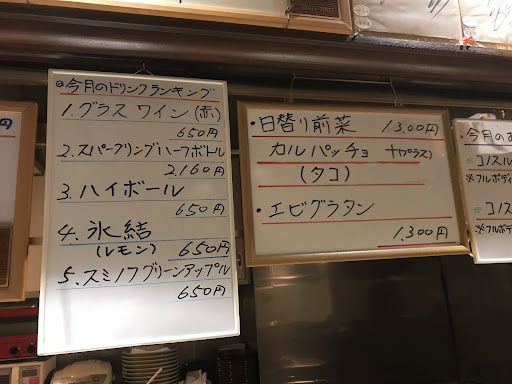 今月のドリンクランキング
1.グラスワイン(赤)
650円
2.スパークリングハーフボトル
2,160円
3.ハイボール
650円
4.氷結
(レモン) 650円
5.スミノフグリーンアップル
650円
・日替り前菜 1300円
カルパッチョ +(プラス)
(タコ)
・エビグラタン
1,300円
今月のお
コノスル
※フルボディ
コノス
※フルボデ
円